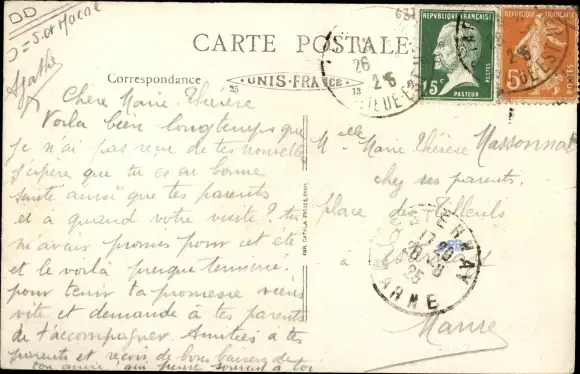 DD
D = S. et Marne
Agathe
CARTE POSTALE
Correspondance
UNIS-FRANCE
25
13
REPVBLIQVE FRANÇAISE
15c
POSTES
PASTEUR
5
POSTES
26
Chère Marie-Thérèse
Voilà bien longtemps que
je n'ai pas reçu de tes nouvelles
j'espère que tu es en bonne
santé ainsi que tes parents
et à quand votre visite ? tu
m'avais promis pour cet été
et le voilà presque terminé,
pour tenir ta promesse viens
vite et demande à tes parents
de t'accompagner. Amitiés à tes
parents et reçois de bons baisers de
ton amie qui pense souvent à toi
Melle Marie Thérèse Massonnat
chez ses parents
place des Tilleuls
à
Marne
EPERNAY
20-8
25
MARNE